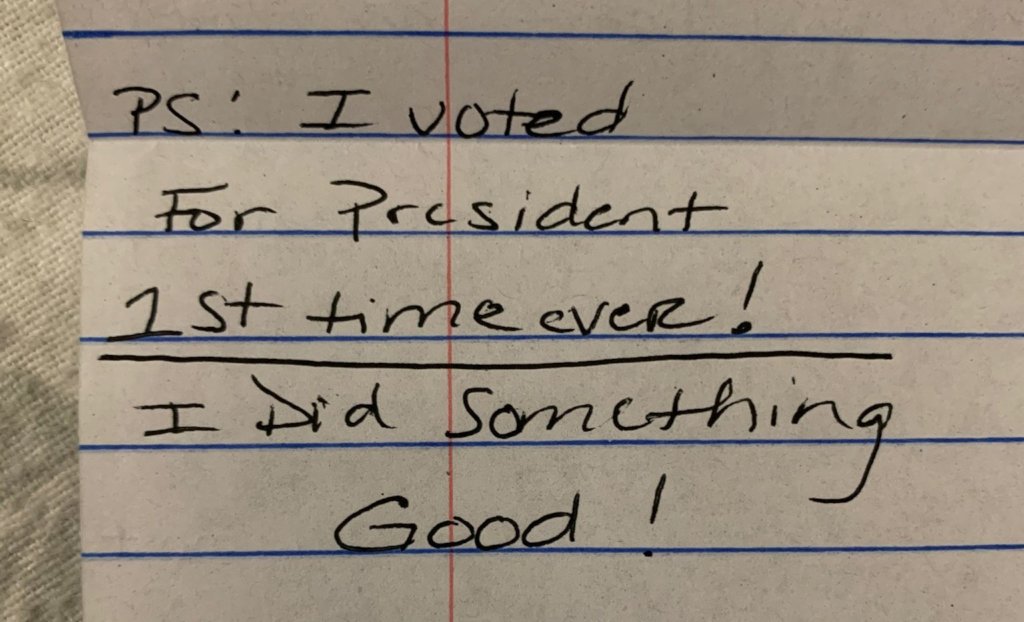 PS: I voted
For President
1st time ever!
I Did Something
Good!